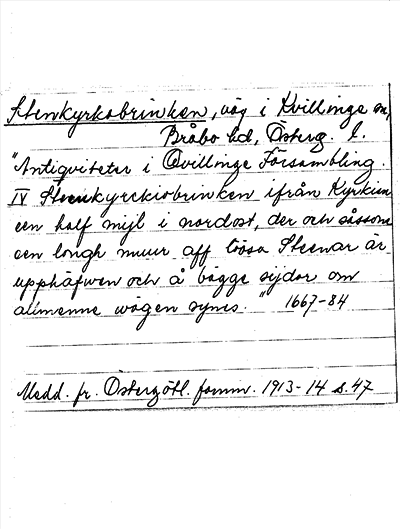 Stenkyrkobrinken, väg i Kvillinge sn,
Bråbo hd, Österg. l.
"Antiqviteter i Qvillinge Försambling.
IV Steenkyrckiobrinken ifrån Kyrkian
een half mijl i nordost, der och såssom
een longh muur aff lösa Steenar är
upphäfwen och å bägge sijdor om
allmenne wägen synes." 1667-84
Medd. fr. Östergötl. fornm. 1913-14 s. 47